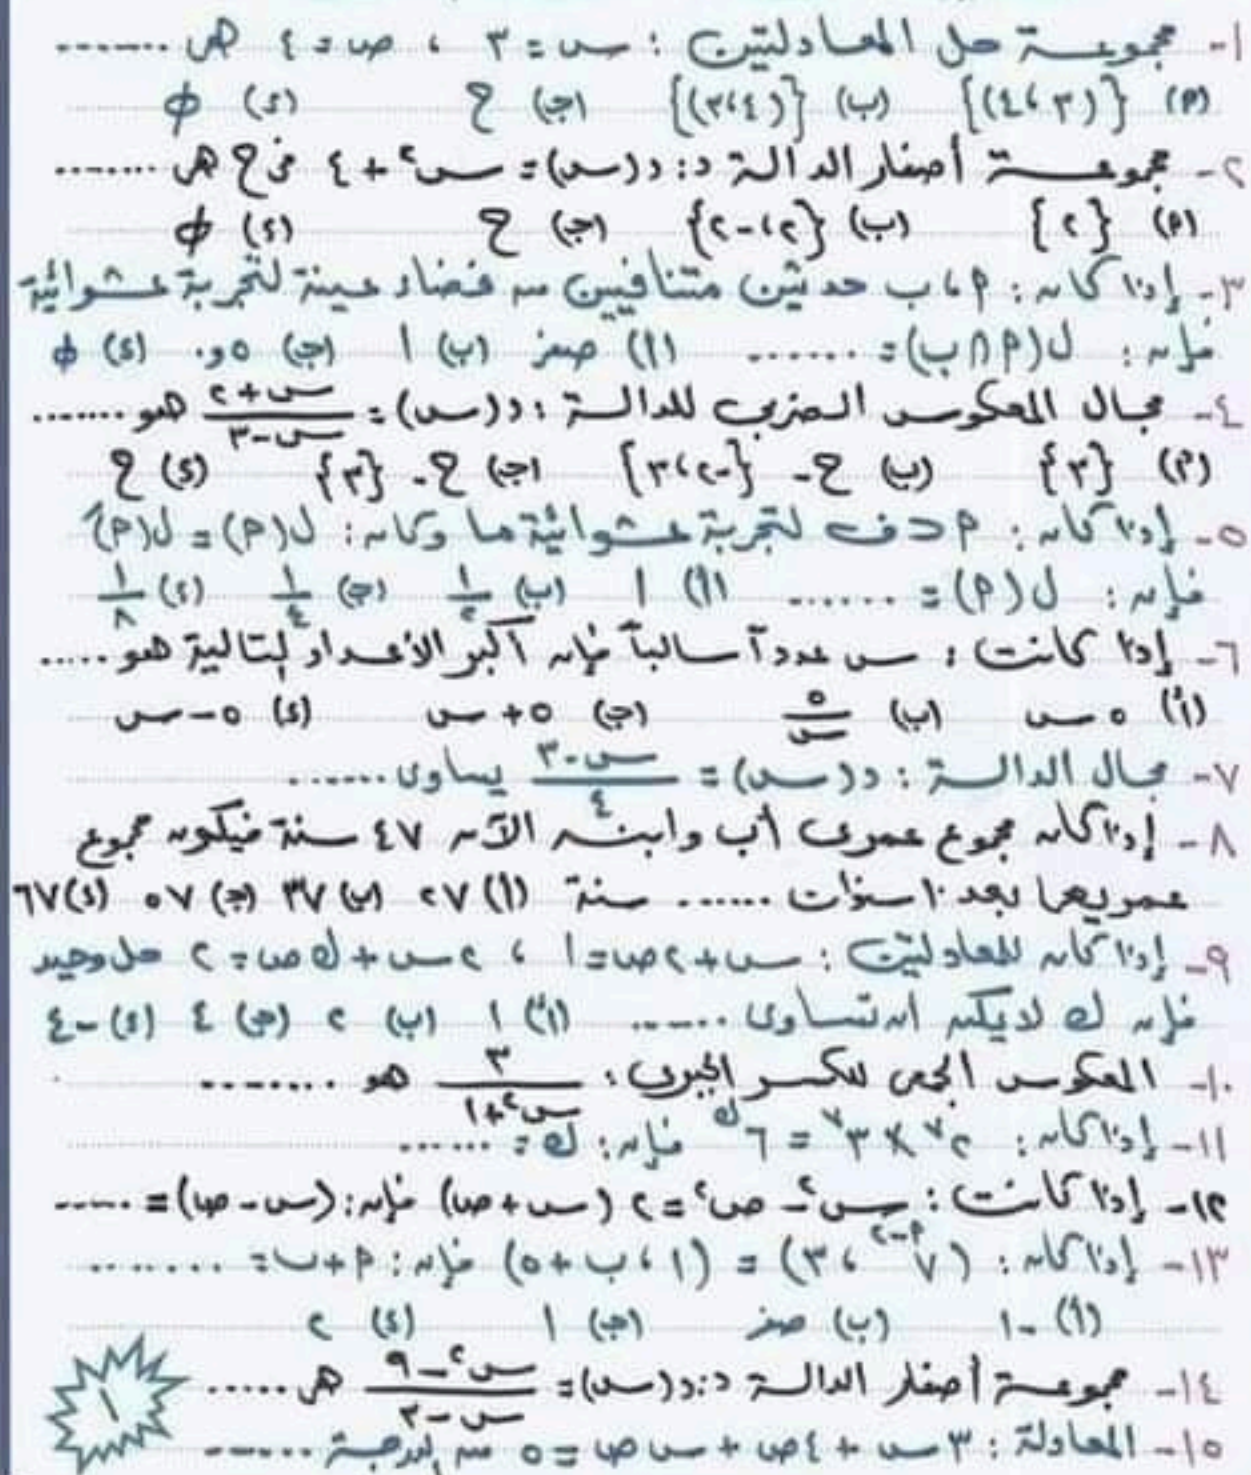 ١- مجموعة حل المعادلتين : س = ٣ ، ص = ٤ هى .......
(م) {(٣ ، ٤)} (ب) {(٤ ، ٣)} (ج) ح (د) φ
٢- مجموعة أصفار الدالة د : د(س) = س٢ + ٤ فى ح هى ........
(م) {٢} (ب) {٢ ، -٢} (ج) ح (د) φ
٣- إذا كان : م ، ب حدثين متنافيين من فضاء عينة لتجربة عشوائية
فإن : ل(م ∩ ب) = ....... (أ) صفر (ب) ١ (ج) ٥ و٠ (د) φ
٤- مجال المعكوس الضربى للدالة : د(س) = س+٢ / س-٣ هو .......
(م) {٣} (ب) ح - {-٢ ، ٣} (ج) ح - {٣} (د) ح
٥- إذا كان : م ⊂ ف لتجربة عشوائية ما وكان : ل(م) = ل(مَ)
فإن : ل(م) = ....... (أ) ١ (ب) ١/٢ (ج) ١/٤ (د) ١/٨
٦- إذا كانت : س عدداً سالباً فإن أكبر الأعداد التالية هو .....
(أ) ٥ س (ب) ٥/س (ج) ٥ + س (د) ٥ - س
٧- مجال الدالة : د(س) = س-٣ / ٤ يساوى .......
٨- إذا كان مجموع عمرى أب وابنه الآن ٤٧ سنة فيكون مجموع
عمريهما بعد ١٠ سنوات ...... سنة (أ) ٢٧ (ب) ٣٧ (ج) ٥٧ (د) ٦٧
٩- إذا كان للمعادلتين : س + ٢ص = ١ ، ٢س + ك ص = ٢ حل وحيد
فإن ك لا يمكن أن تساوى ...... (أ) ١ (ب) ٢ (ج) ٤ (د) -٤
١٠- المعكوس الجمعى للكسر الجبرى : ٣ / س٢+١ هو ........
١١- إذا كان : ٢^٧ × ٣^٧ = ٦^ك فإن : ك = .......
١٢- إذا كانت : س٢ - ص٢ = ٢ (س + ص) فإن : (س - ص) = .....
١٣- إذا كان : (٧^م-٢ ، ٣) = (١ ، ب + ٥) فإن : م + ب = ........
(أ) -١ (ب) صفر (ج) ١ (د) ٢
١٤- مجموعة أصفار الدالة د : د(س) = س٢-٩ / س-٣ هى .....
١٥- المعادلة : ٣س + ٤ص + س ص = ٥ من الدرجة ......
١